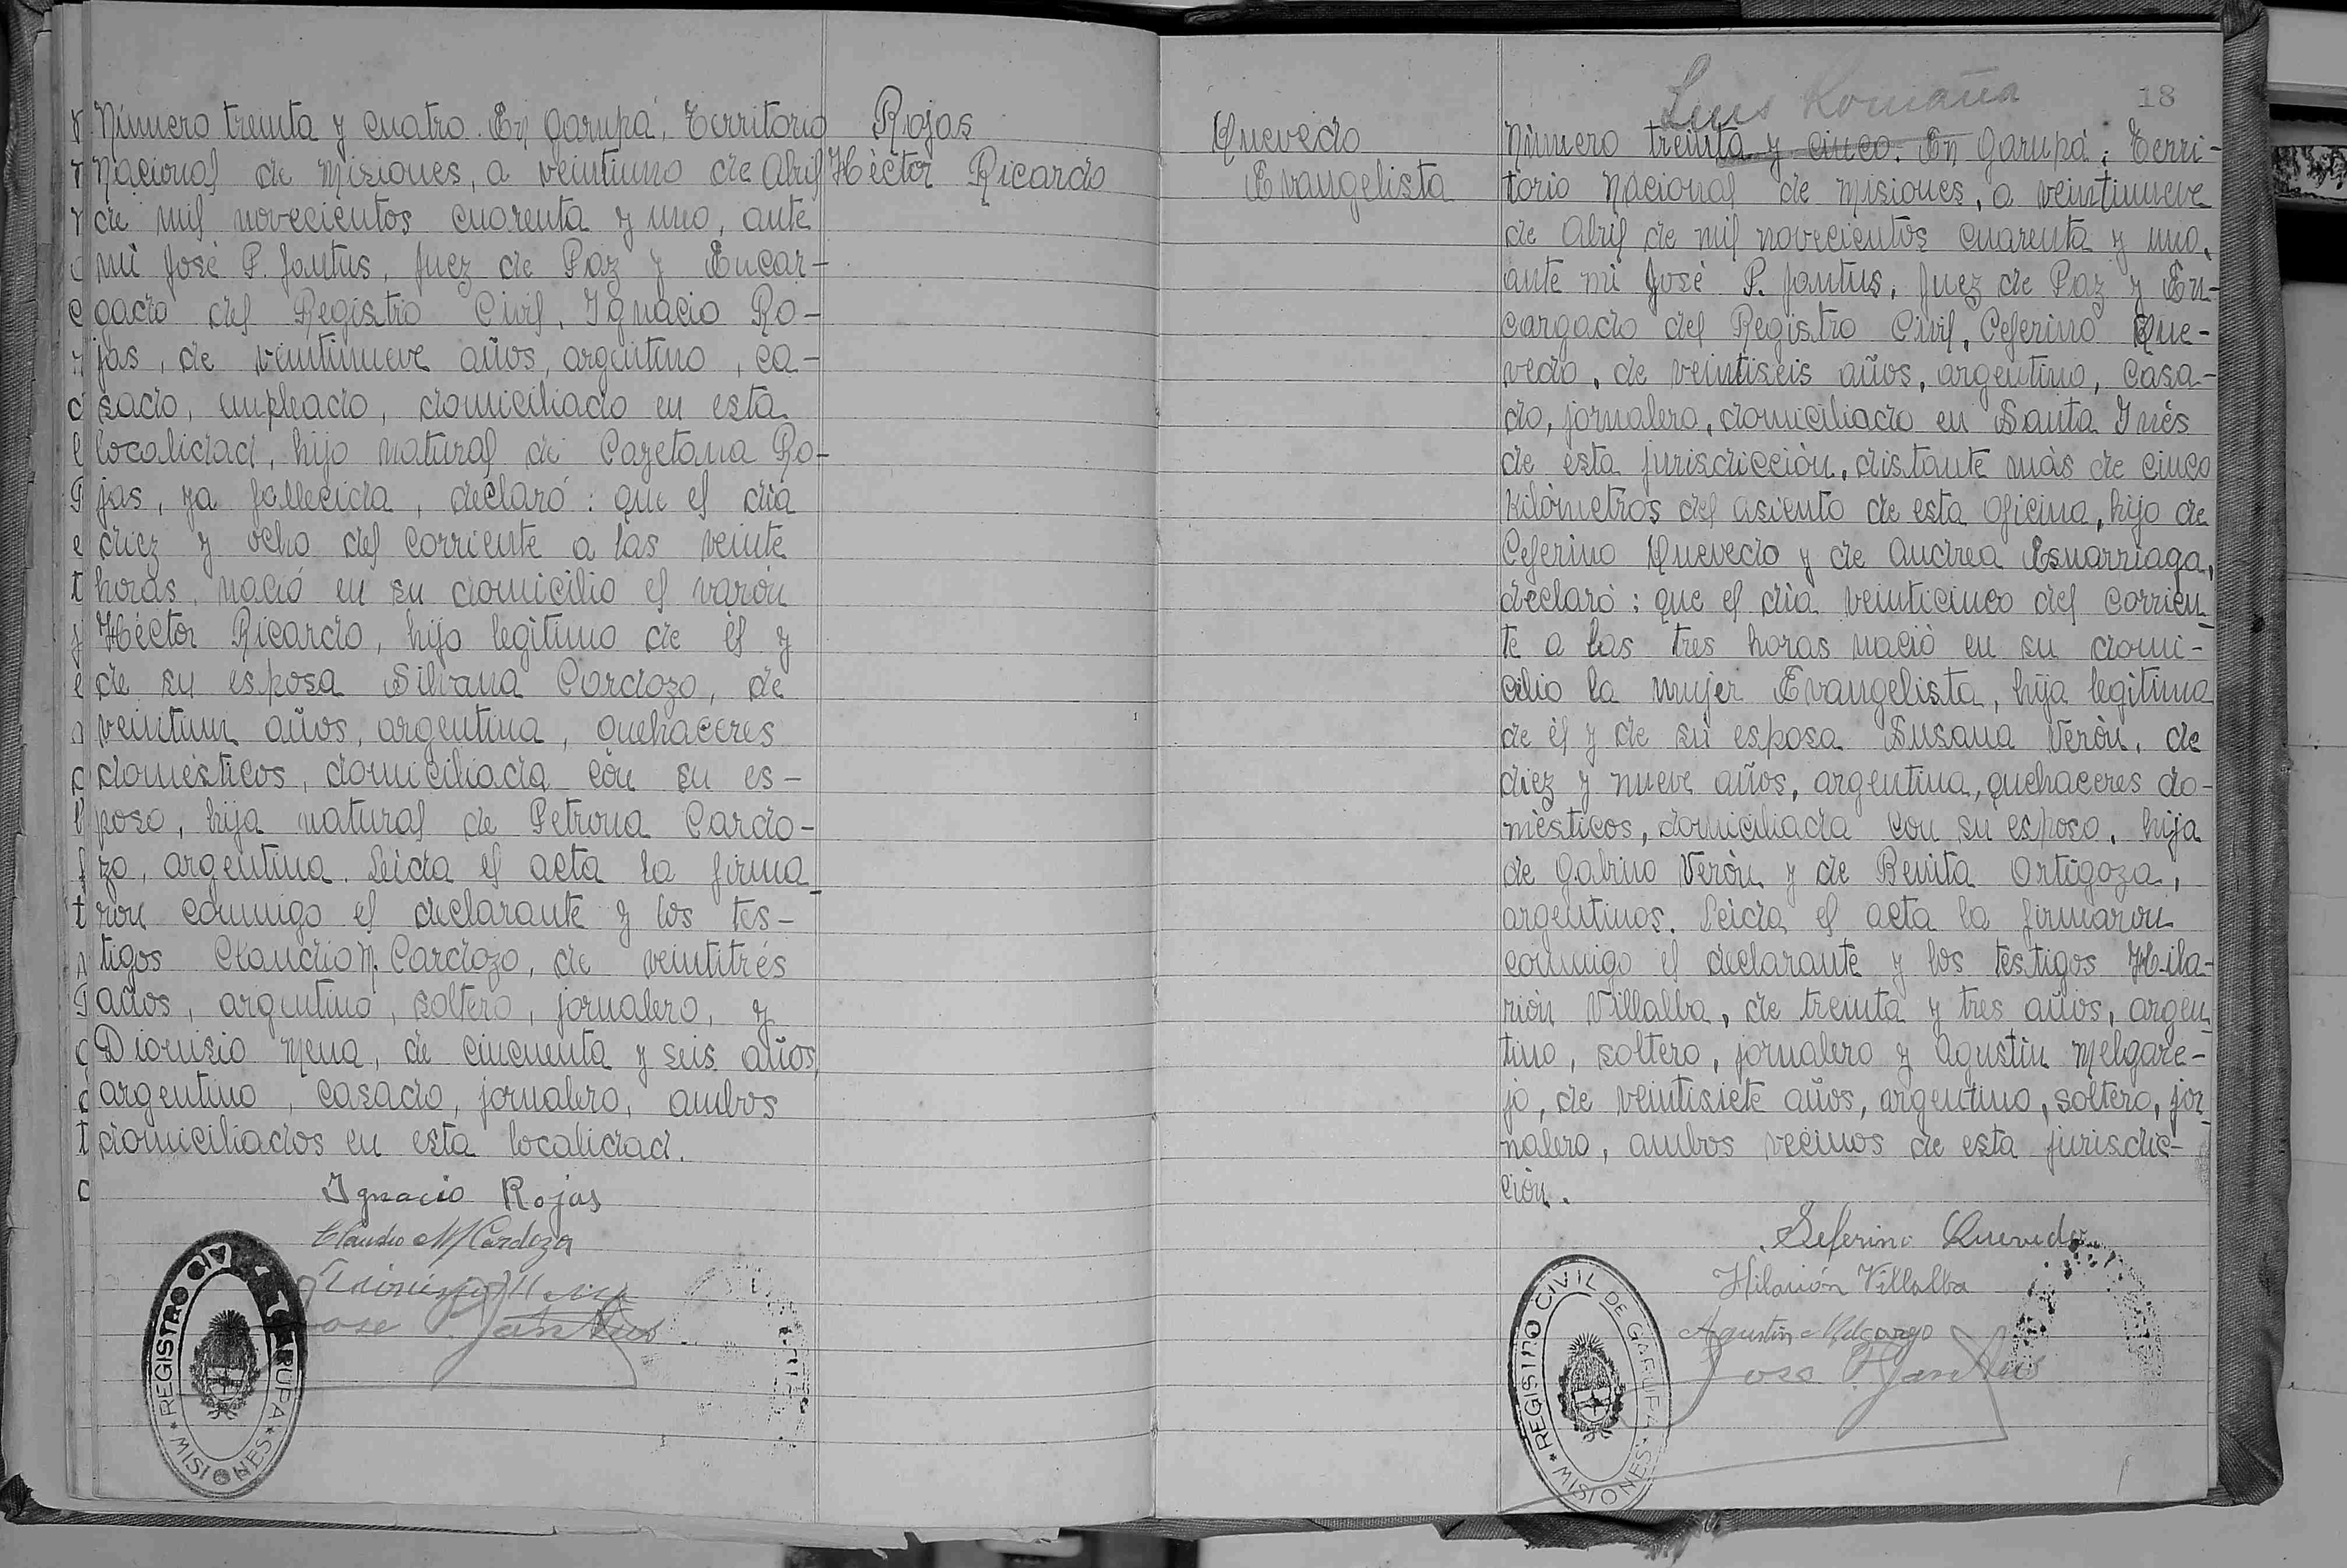 Número treinta y cuatro. En Garupá, Territorio
Nacional de Misiones, a veintiuno de Abril
de mil novecientos cuarenta y uno, ante
mi José P. Jantus, Juez de Paz y Encar-
gado del Registro Civil, Ignacio Ro-
jas, de veintinueve años, argentino, ca-
sado, empleado, domiciliado en esta
localidad, hijo natural de Cayetana Ro-
jas, ya fallecida, declaró: que el día
diez y ocho del corriente a las veinte
horas, nació en su domicilio el varón
Héctor Ricardo, hijo legítimo de él y
de su esposa Silvana Cardozo, de
veintiun años, argentina, quehaceres
domésticos, domiciliada con su es-
poso, hija natural de Petrona Cardo-
zo, argentina. Leida el acta la firma-
ron conmigo el declarante y los tes-
tigos Claudio M. Cardozo, de veintitrés
años, argentino, soltero, jornalero, y
Dionisio Mena, de cincuenta y seis años,
argentino, casado, jornalero, ambos
domiciliados en esta localidad.
Ignacio Rojas
Claudio M Cardozo
Dionisio Mena
Jose P. Jantus
REGISTRO CIVIL DE GARUPA
* MISIONES *
Rojas
Héctor Ricardo
Quevedo
Evangelista
Luis Romaña
18
Número treinta y cinco. En Garupá, Terri-
torio Nacional de Misiones, a veintinueve
de Abril de mil novecientos cuarenta y uno,
ante mi José P. Jantus, Juez de Paz y En-
cargado del Registro Civil, Ceferino Que-
vedo, de veintiseis años, argentino, casa-
do, jornalero, domiciliado en Santa Inés
de esta jurisdicción, distante más de cinco
kilómetros del asiento de esta Oficina, hijo de
Ceferino Quevedo y de Andrea Esnarriaga,
declaró: que el día veinticinco del corrien-
te a las tres horas nació en su domi-
cilio la mujer Evangelista, hija legítima
de él y de su esposa Susana Verón, de
diez y nueve años, argentina, quehaceres do-
mésticos, domiciliada con su esposo, hija
de Gabino Verón y de Benita Ortigoza,
argentinos. Leida el acta la firmaron
conmigo el declarante y los testigos Hila-
rión Villalba, de treinta y tres años, argen-
tino, soltero, jornalero y Agustín Melgare-
jo, de veintisiete años, argentino, soltero, jor-
nalero, ambos vecinos de esta jurisdic-
ción.
Seferino Quevedo
Hilarión Villalba
Agustin Melgarejo
Jose P. Jantus
REGISTRO CIVIL DE GARUPA
* MISIONES *